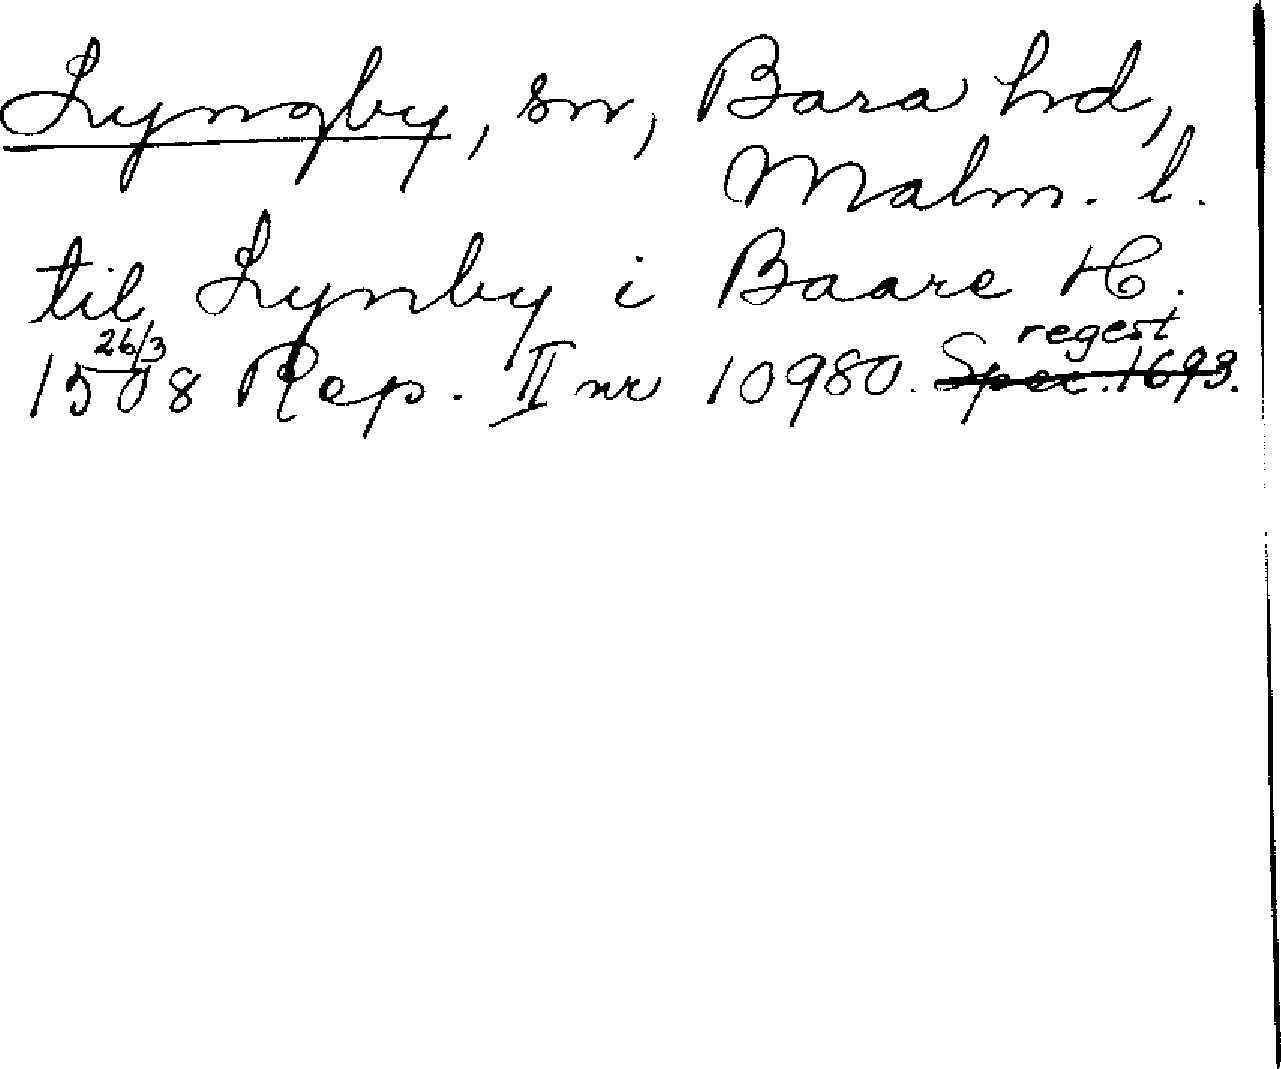 Lyngby, sn, Bara hd,
Malm. l.
til Lynby i Baare H.
26/3 regest
1508 Rep. II nr 10980. Spec. 1693.